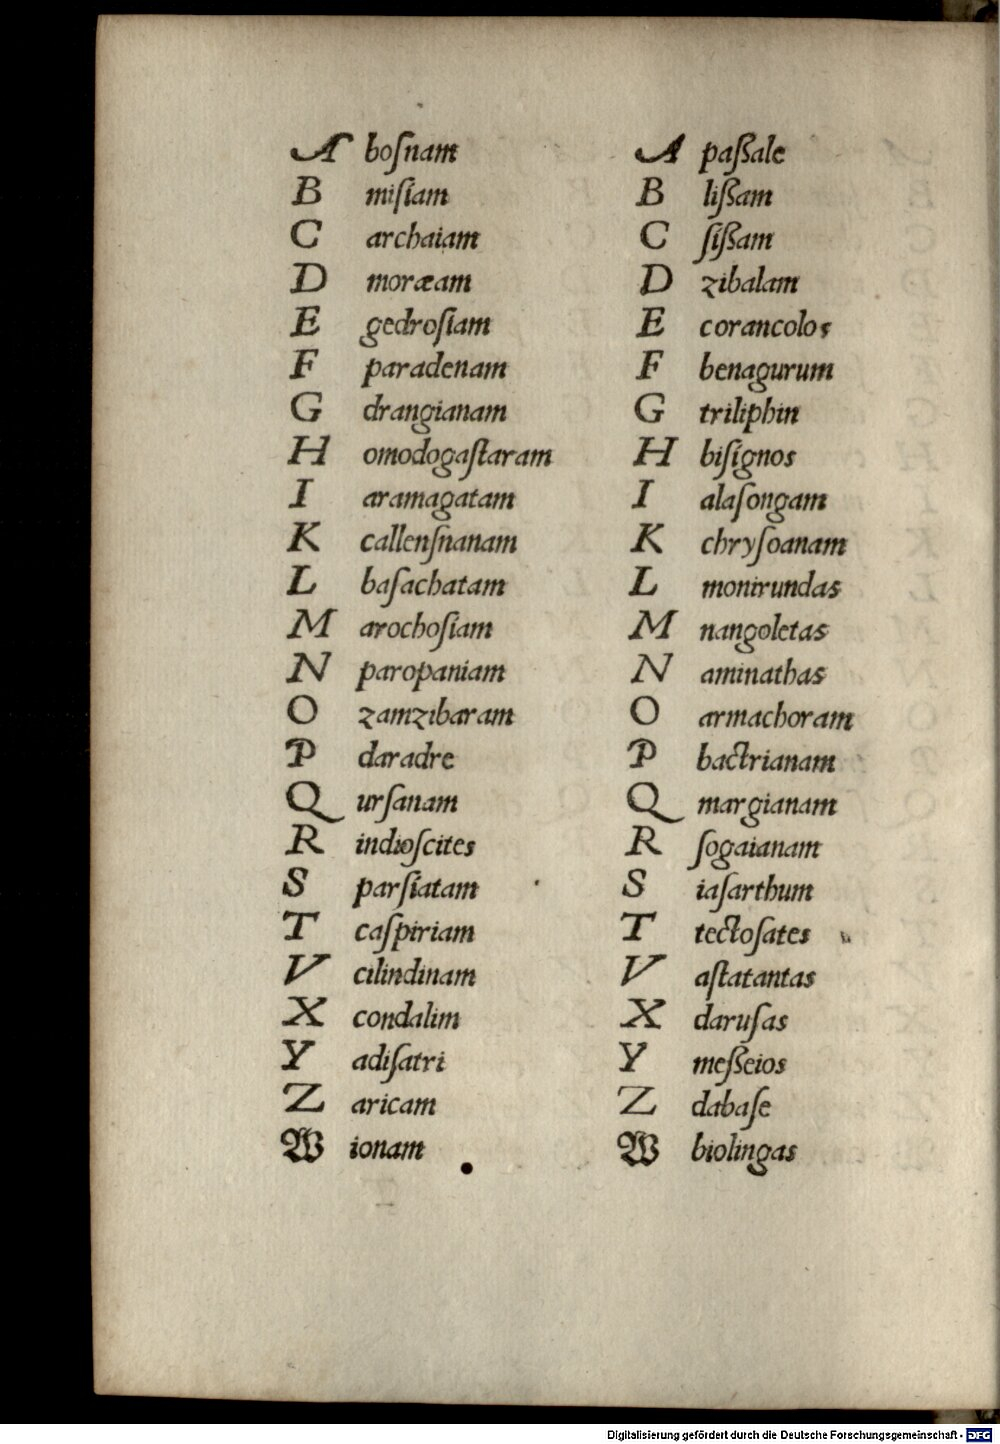 A boſnam
B miſiam
C archaiam
D moræam
E gedroſiam
F paradenam
G drangianam
H omodogaſtaram
I aramagatam
K callenſnanam
L baſachatam
M arochoſiam
N paropaniam
O zamzibaram
P daradre
Q urſanam
R indioſcites
S parſiatam
T caſpiriam
V cilindinam
X condalim
Y adiſatri
Z aricam
W ionam
A paßale
B lißam
C ſißam
D zibalam
E corancolos
F benagurum
G triliphin
H biſignos
I alaſongam
K chryſoanam
L monirundas
M nangoletas
N aminathas
O armachoram
P bactrianam
Q margianam
R ſogaianam
S iaſarthum
T tectoſates
V aſtatantas
X daruſas
Y meßeios
Z dabaſe
W biolingas
Digitalisierung gefördert durch die Deutsche Forschungsgemeinschaft - DFG